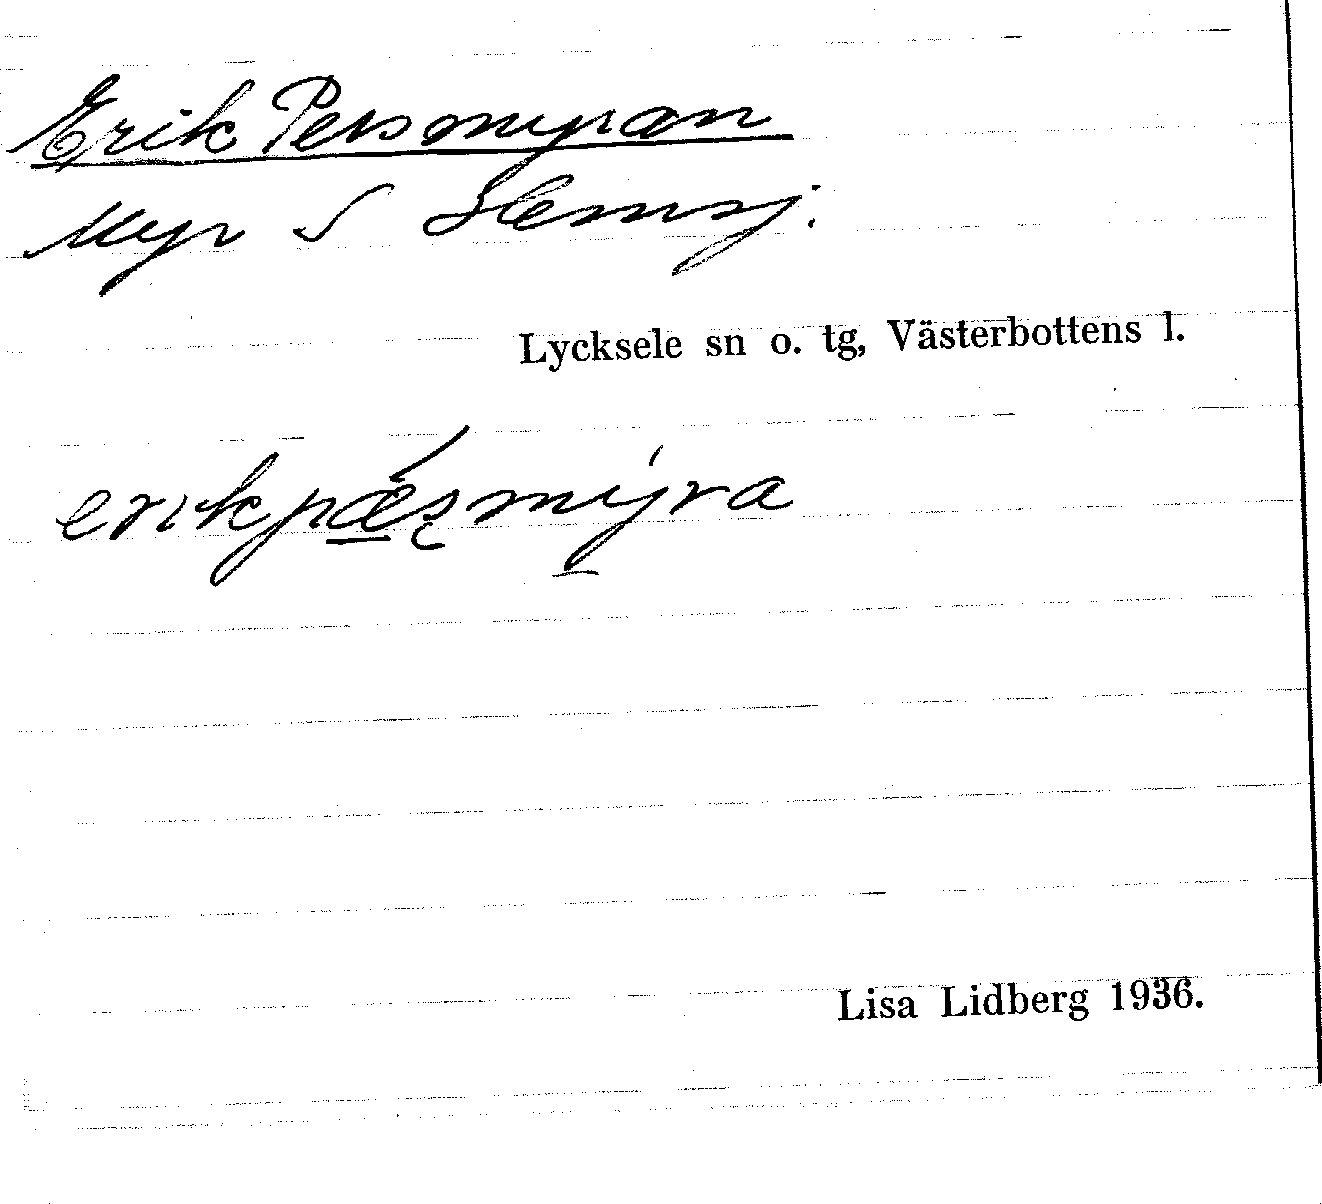 Erik Persmyran
Myr S Hemsj.
Lycksele sn o. tg, Västerbottens l.
erikpǽșmýra
Lisa Lidberg 1936.